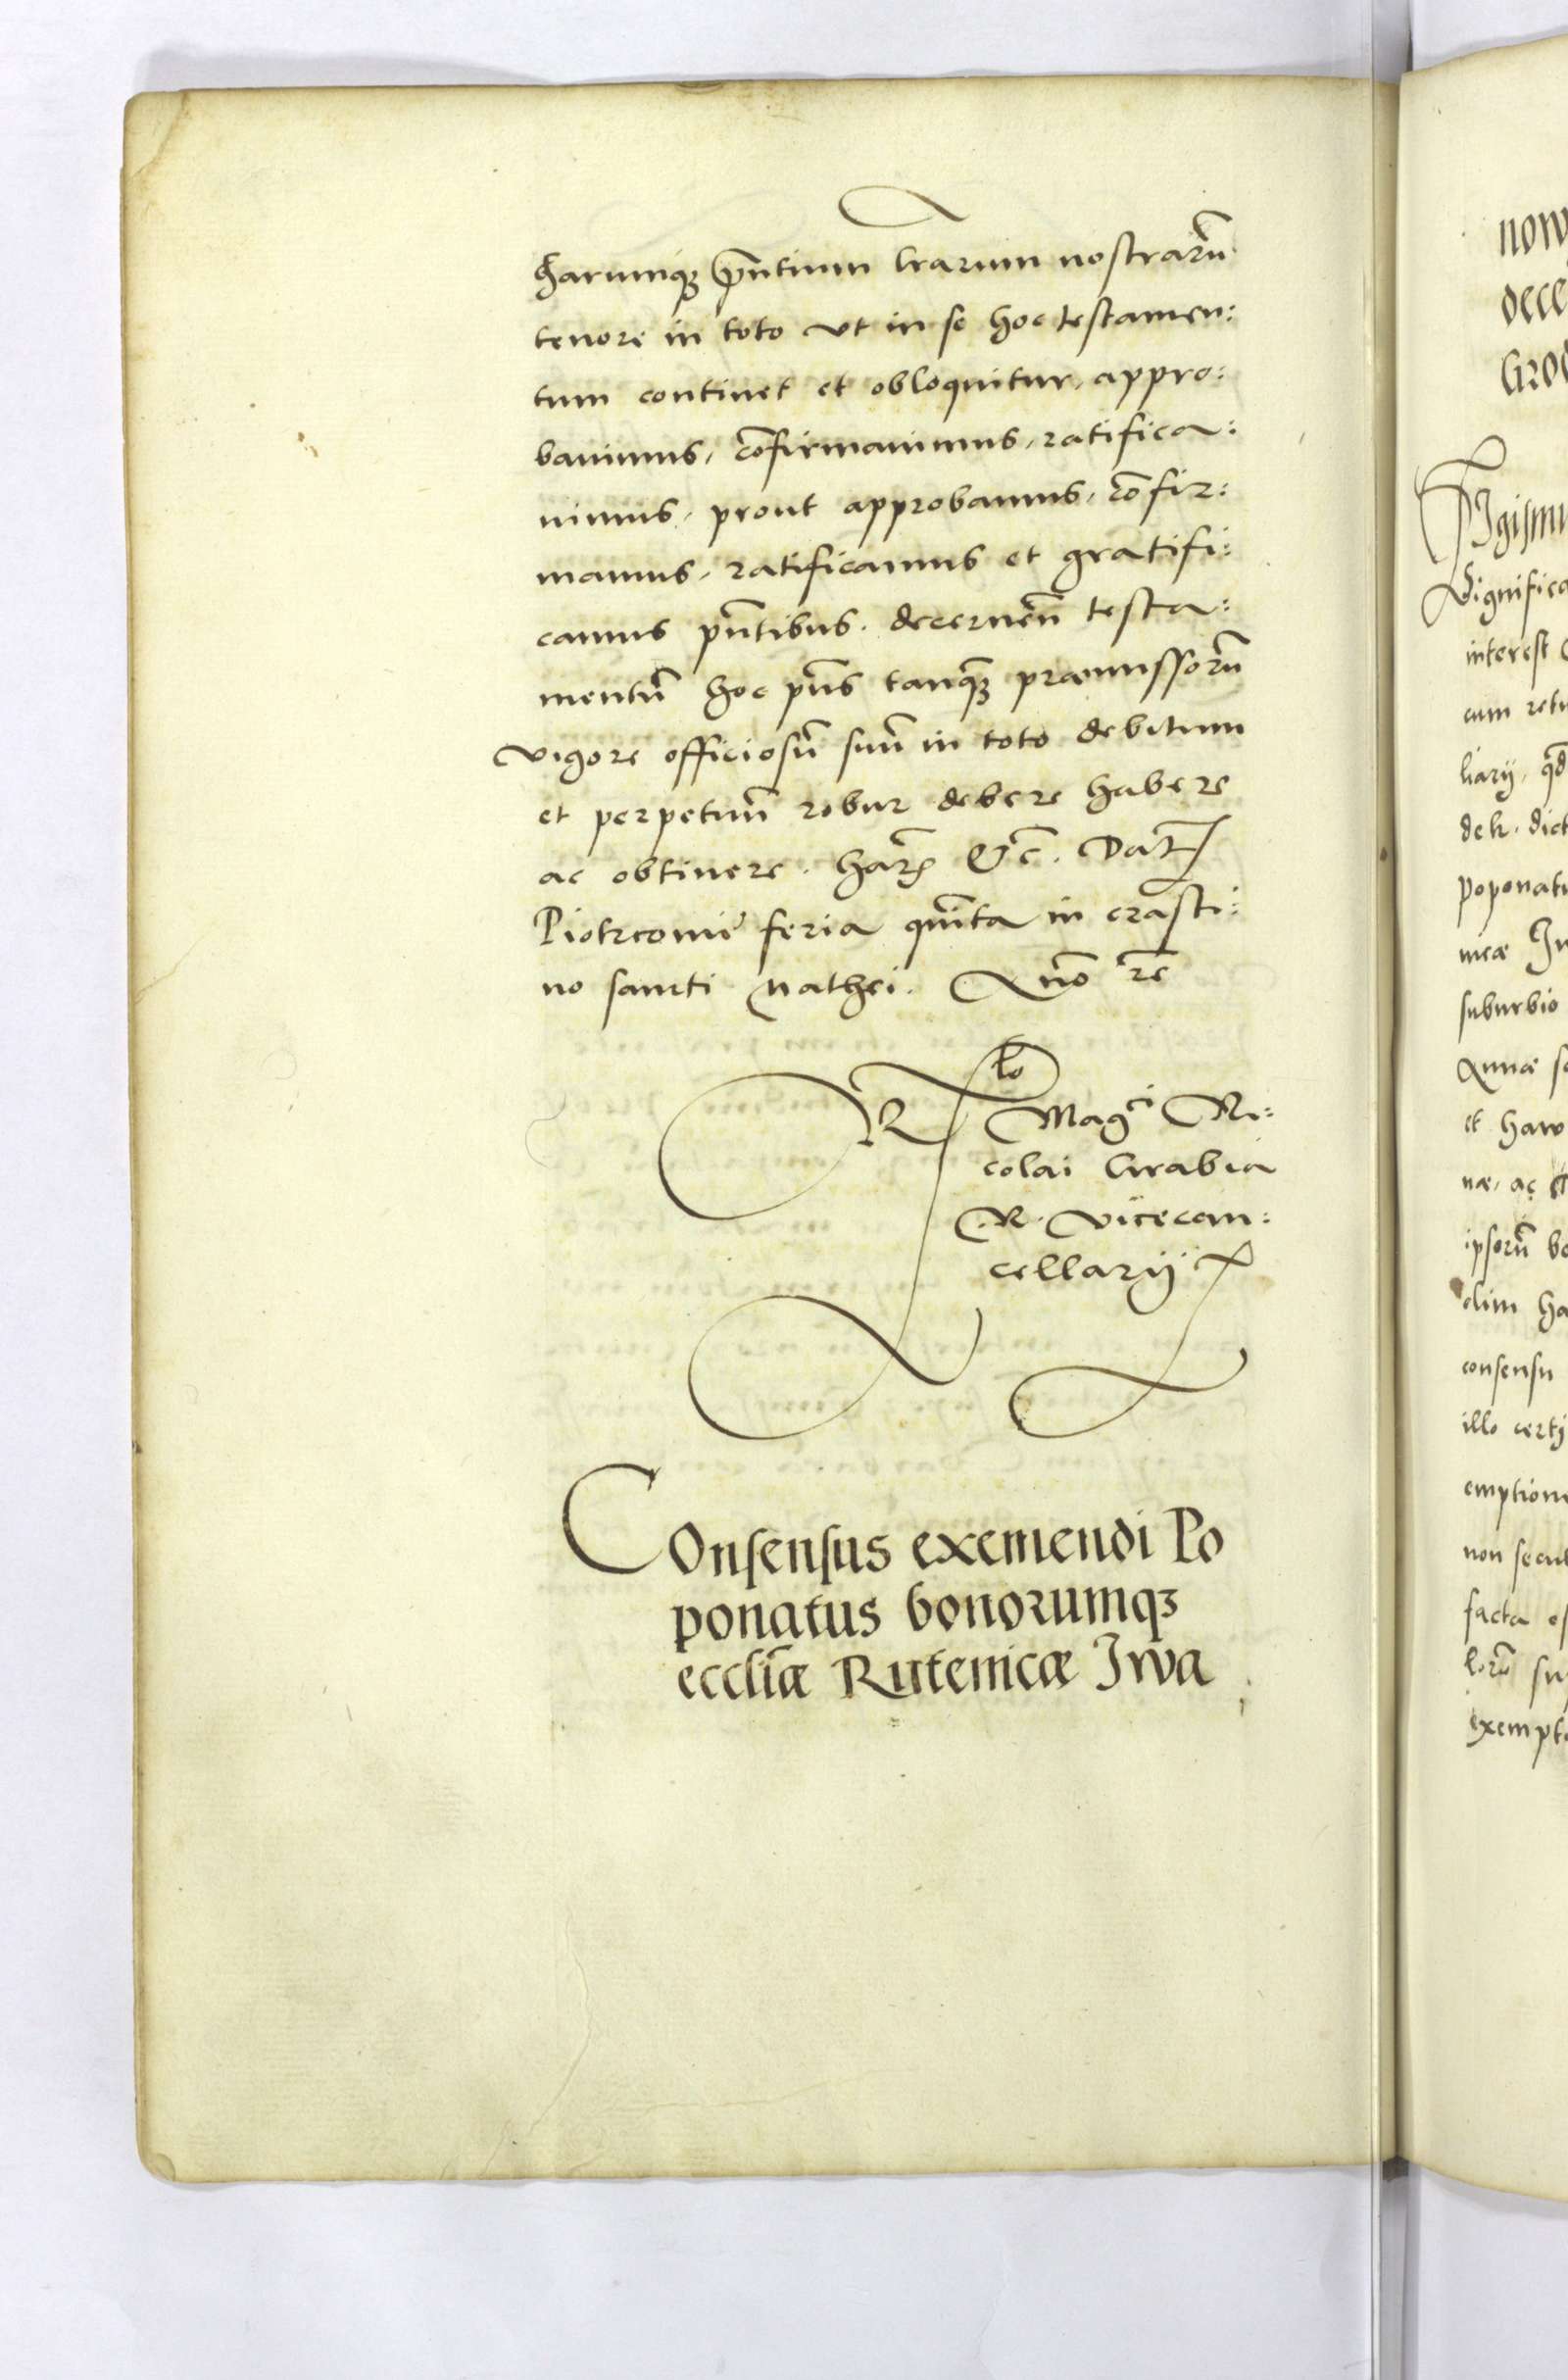 harumqꝫ p̃ntium l̃rarum nostrarũ
tenore in toto vt in se hoc testamen:
tum continet et obloquitur, appro:
bauimus, cõfirmauimus, ratifica:
uimus, prout approbamus, cõfir:
mamus, ratificamus et gratifi:
camus p̃ntibus. decernen̄ testa:
mentũ hoc p̃ns tanqꝫ præmissorũ
vigore officiosũ suũ in toto debitum
et perpetuũ robur debere habere
ac obtinere. har̃ &c̃. Dat̃
Piotrcouiẽ feria quĩta in crasti:
no sancti Mathei. Anõ rẽ
R lo
Mag^ci Ni:
colai Grabia
.R. vicecan:
cellarij
COnsensus exemendi Po
ponatus bonorumqꝫ
eccl̃iæ Rutenicæ Jwa
now
dece
Gro
SJgismu
Significa
interest
cum retu
liarij, qd̃
dek. dict
Poponatu
meæ Jn
suburbio
Annæ
et haw
næ, ac
ipsorũ bo
olim ha
consensu
illo certi
emption
non secu
facta es
lorũ su
exempt